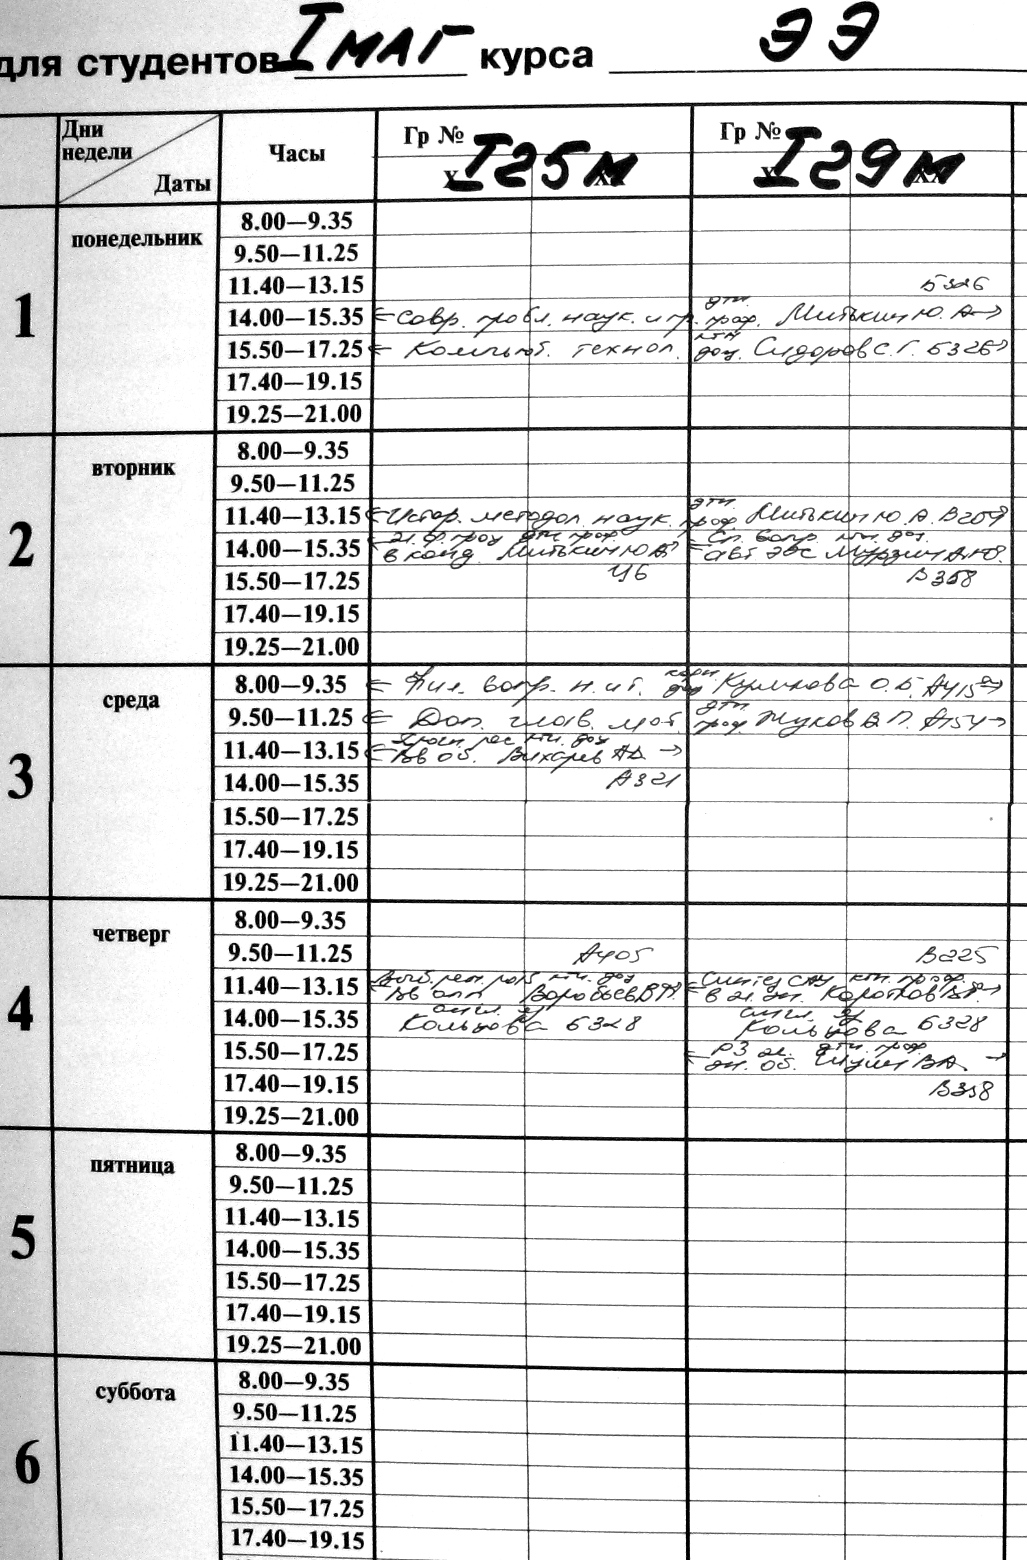 для студентов I маг курса ЭЭ
Дни недели
Даты
Часы
Гр №
I 25м
Гр №
I 29м
1
понедельник
8.00—9.35
9.50—11.25
11.40—13.15 Б326
14.00—15.35 Совр. пробл. наук. и пр. дтн. проф. Митькин Ю. А.
15.50—17.25 Компьют. технол. ктн доц. Сидоров С. Г. Б326
17.40—19.15
19.25—21.00
2
вторник
8.00—9.35
9.50—11.25
11.40—13.15 Истор. методол. наук. дтн. проф. Митькин Ю. А. В209
14.00—15.35 в конд. Митькин Ю А Сп. вопр. ктн. доц. авт ЭЭС Мурзин А.Ю.
15.50—17.25 Ц6 В358
17.40—19.15
19.25—21.00
3
среда
8.00—9.35 Фил. вопр. н. и т. Куликова О. Б. А415а
9.50—11.25 Доп. глав. мат. дтн проф Жуков В. П. А154
11.40—13.15 ктн. доц Вихарев АД
14.00—15.35 А321
15.50—17.25
17.40—19.15
19.25—21.00
4
четверг
8.00—9.35
9.50—11.25 А405 В225
11.40—13.15 ктн. доц Воробьев В.Ф. Синтез САУ ктн. проф. в эл. эн. Коротков В.Ф.
14.00—15.35 англ. яз Кольцова Б328 англ. яз Кольцова Б328
15.50—17.25 РЗ эл. дтн. проф. эн. об. Шуин ВА
17.40—19.15 В358
19.25—21.00
5
пятница
8.00—9.35
9.50—11.25
11.40—13.15
14.00—15.35
15.50—17.25
17.40—19.15
19.25—21.00
6
суббота
8.00—9.35
9.50—11.25
11.40—13.15
14.00—15.35
15.50—17.25
17.40—19.15